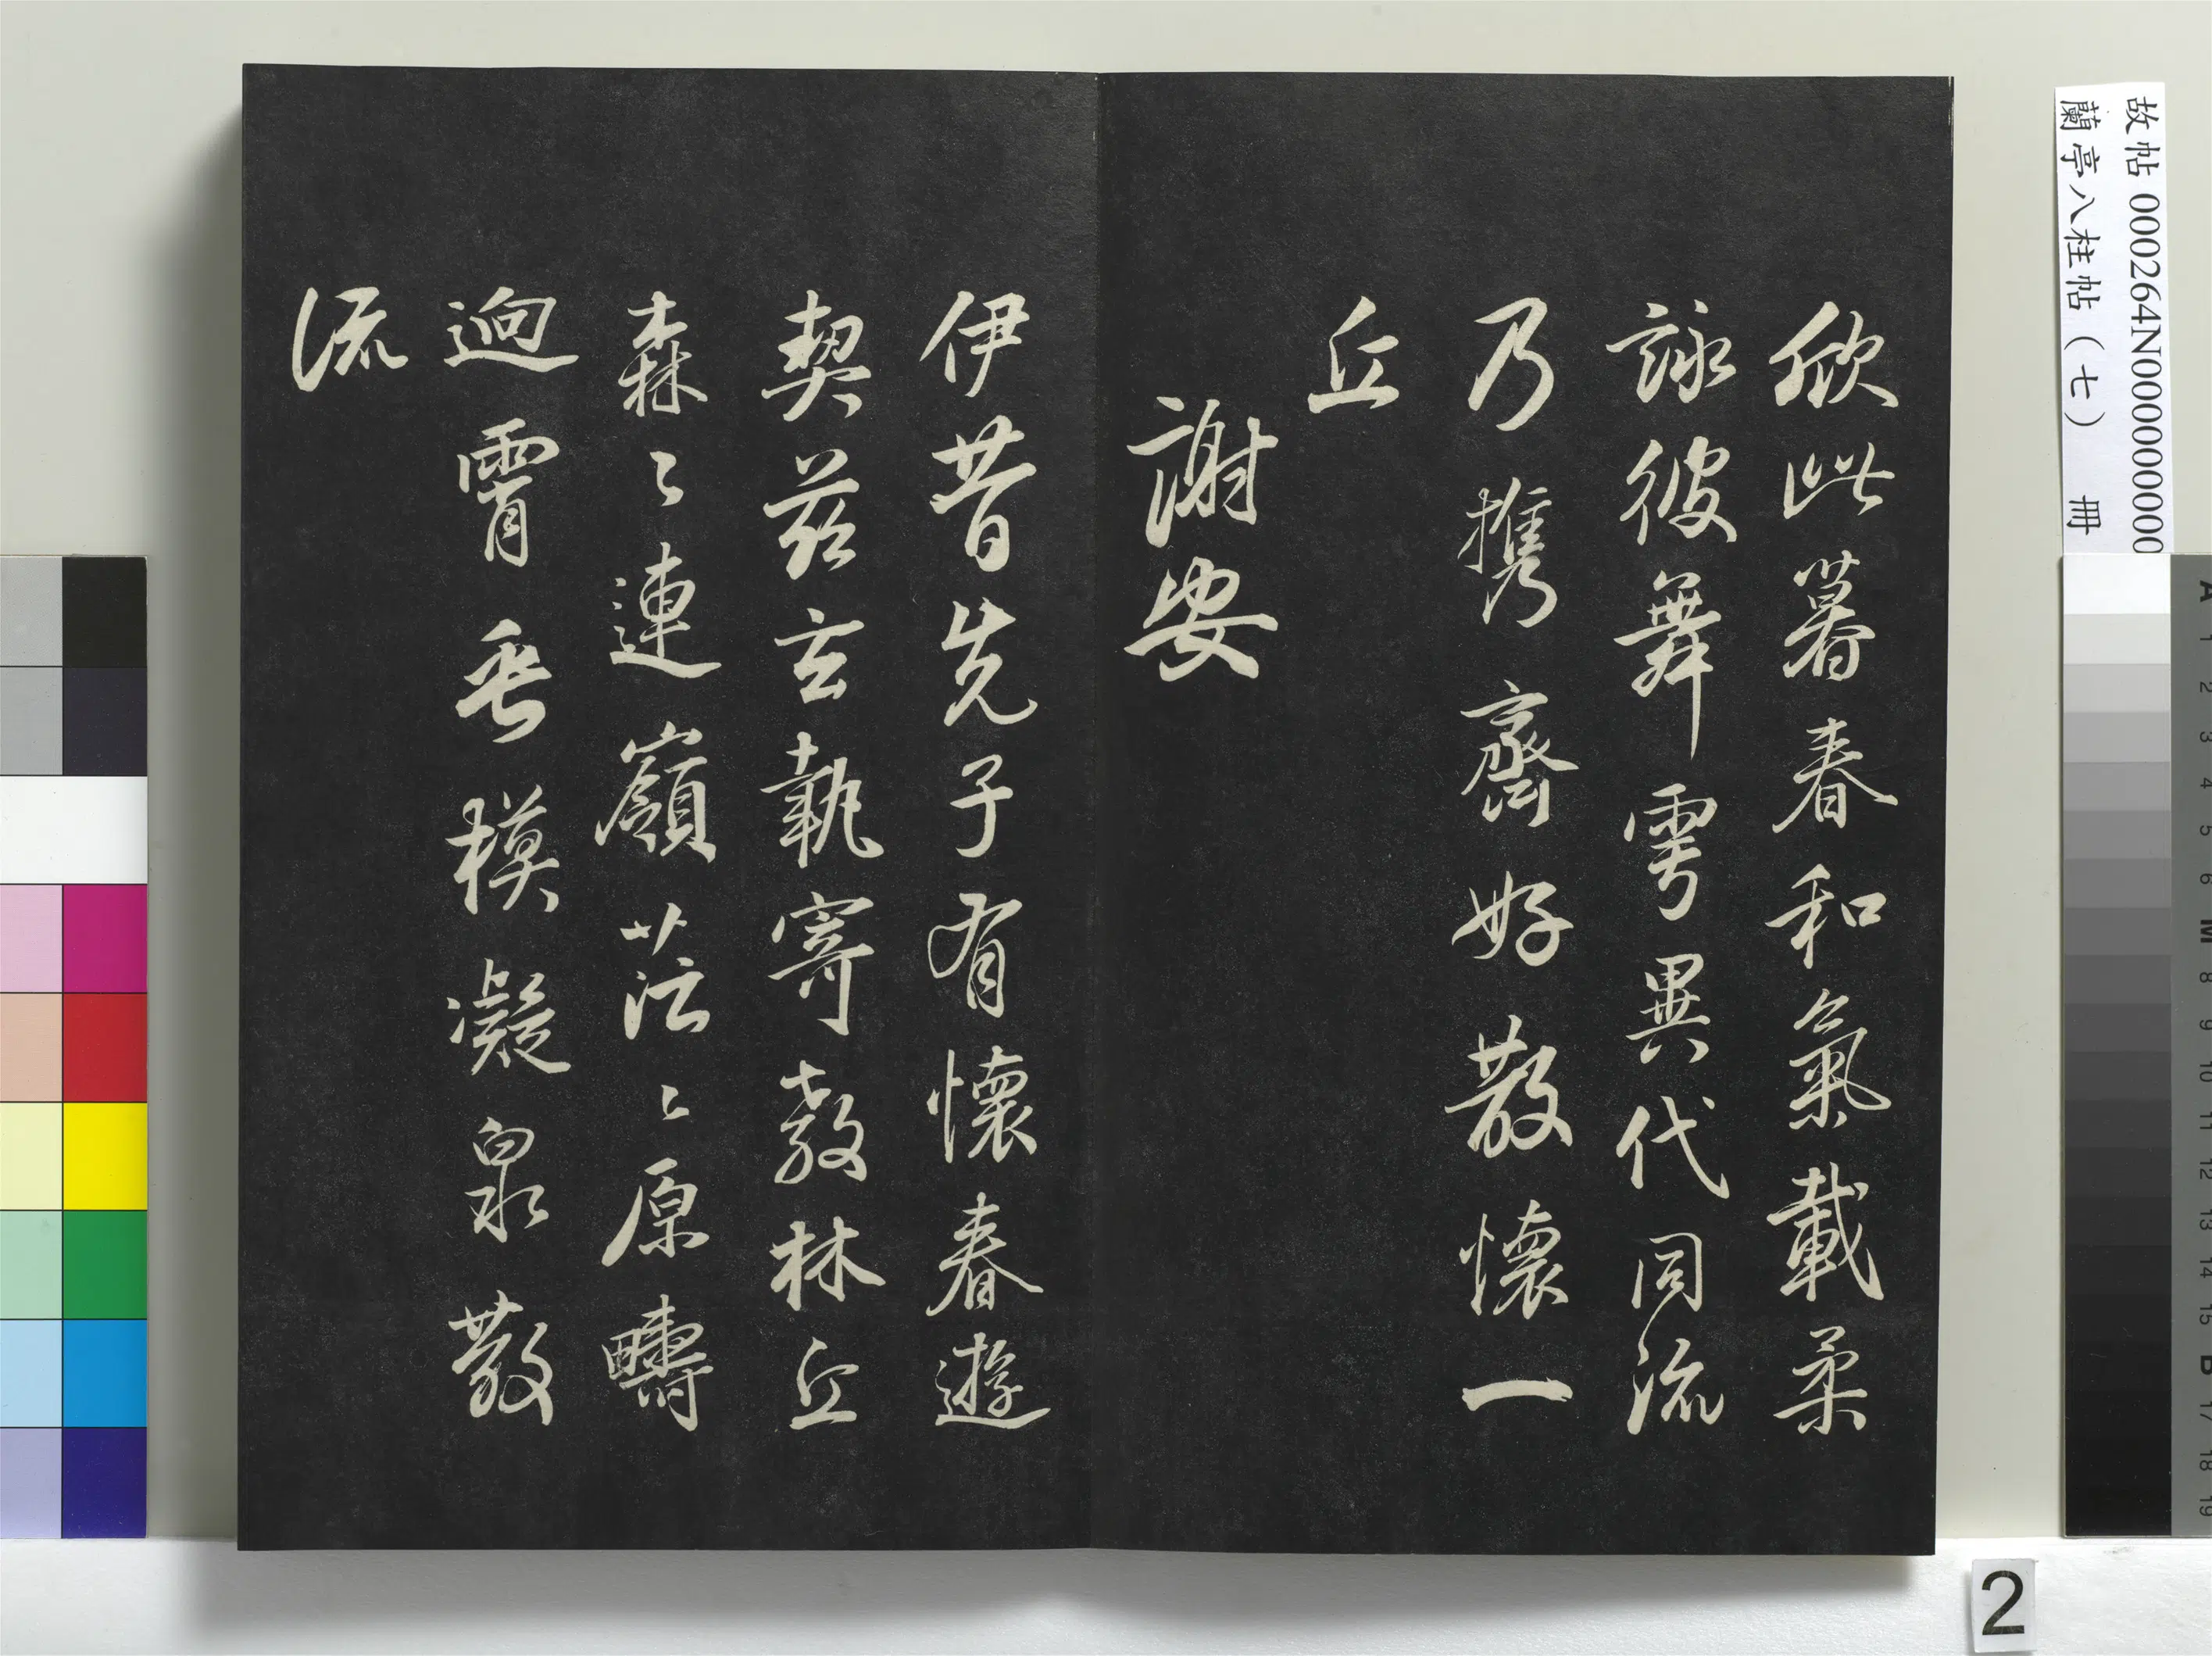 故帖 000264N000000000
蘭亭八柱帖（七） 冊
欣此暮春和氣載柔
詠彼舞雩異代同流
乃攜齊好散懷一
丘
謝安
伊昔先子有懷春遊
契茲玄執寄敖林丘
森〻連嶺茫〻原疇
迥霄垂模凝泉散
流
A 1 2 3 4 5 6 M 8 9 10 11 12 13 14 15 B 17 18 19
2